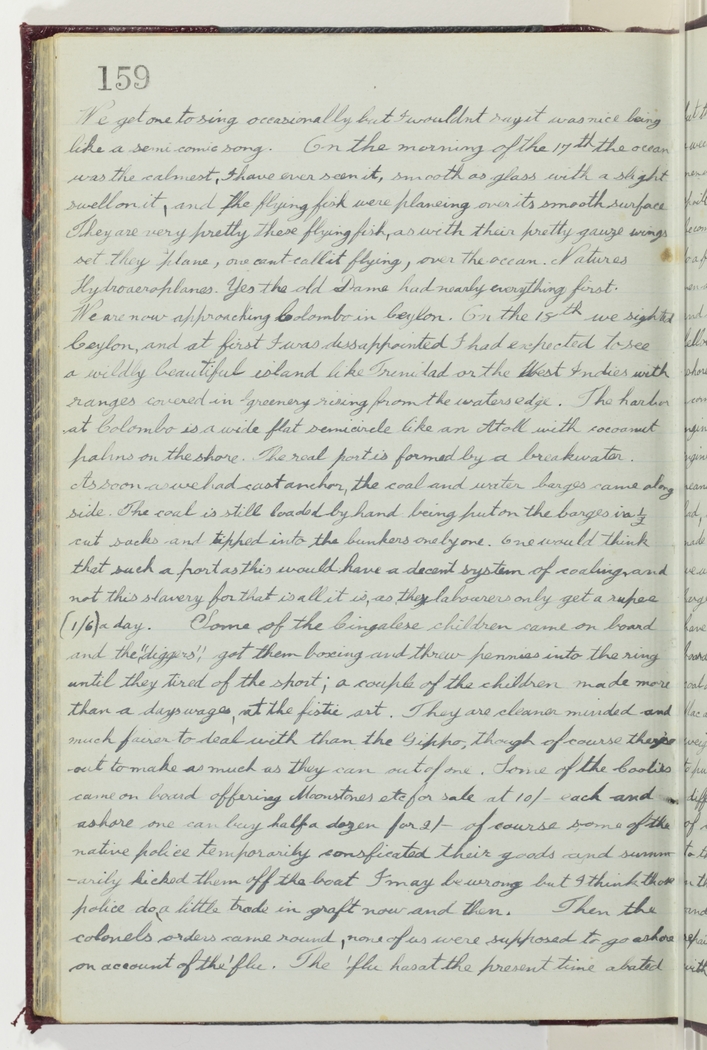 159
We get one to sing occasionally but I wouldnt say it was nice being
like a semi comic song. On the morning of the 17th the ocean
was the calmest, I have ever seen it, smooth as glass with a slight
swell on it, and the flying fish were planeing over its smooth surface
They are very pretty these flying fish, as with their pretty gauze wings
set they 'plane, one cant call it flying, over the ocean. Natures
Hydroaeroplanes. Yes the old Dame had nearly everything first.
We are now approaching Colombo in Ceylon. On the 18th we sighted
Ceylon, and at first I was dissappointed I had expected to see
a wildly beautiful island like Trinidad or the West Indies with
ranges covered in greenery rising from the waters edge. The harbor
at Colombo is a wide flat semicircle like an Atoll with cocoanut
palms on the shore. The real port is formed by a breakwater.
As soon as we had cast anchor, the coal and water barges came along
side. The coal is still loaded by hand being put on the barges in ½
cut sacks and tipped into the bunkers one by one. One would think
that such a port as this would have a decent system of coaling, and
not this slavery for that is all it is, as they labourers only get a rupee
(1/6) a day. Some of the Cingalese children came on board
and the "diggers", got them boxing and threw pennies into the ring
until they tired of the sport; a couple of the children made more
than a days wages, at the fistic art. They are cleaner minded and
much fairer to deal with than the Gippo, though of course they're
out to make as much as they can out of one. Some of the Coolies
came on board offering Moonstones etc for sale at 10/- each and
ashore one can buy half a dozen for 2/- of course some of the
native police temporarily consficated their goods and summ-
-arily kicked them off the boat I may be wrong but I think those
police do a little trade in graft now and then. Then the
colonels orders came round, none of us were supposed to go ashore
on account of the 'flu. The 'flu has at the present time abated